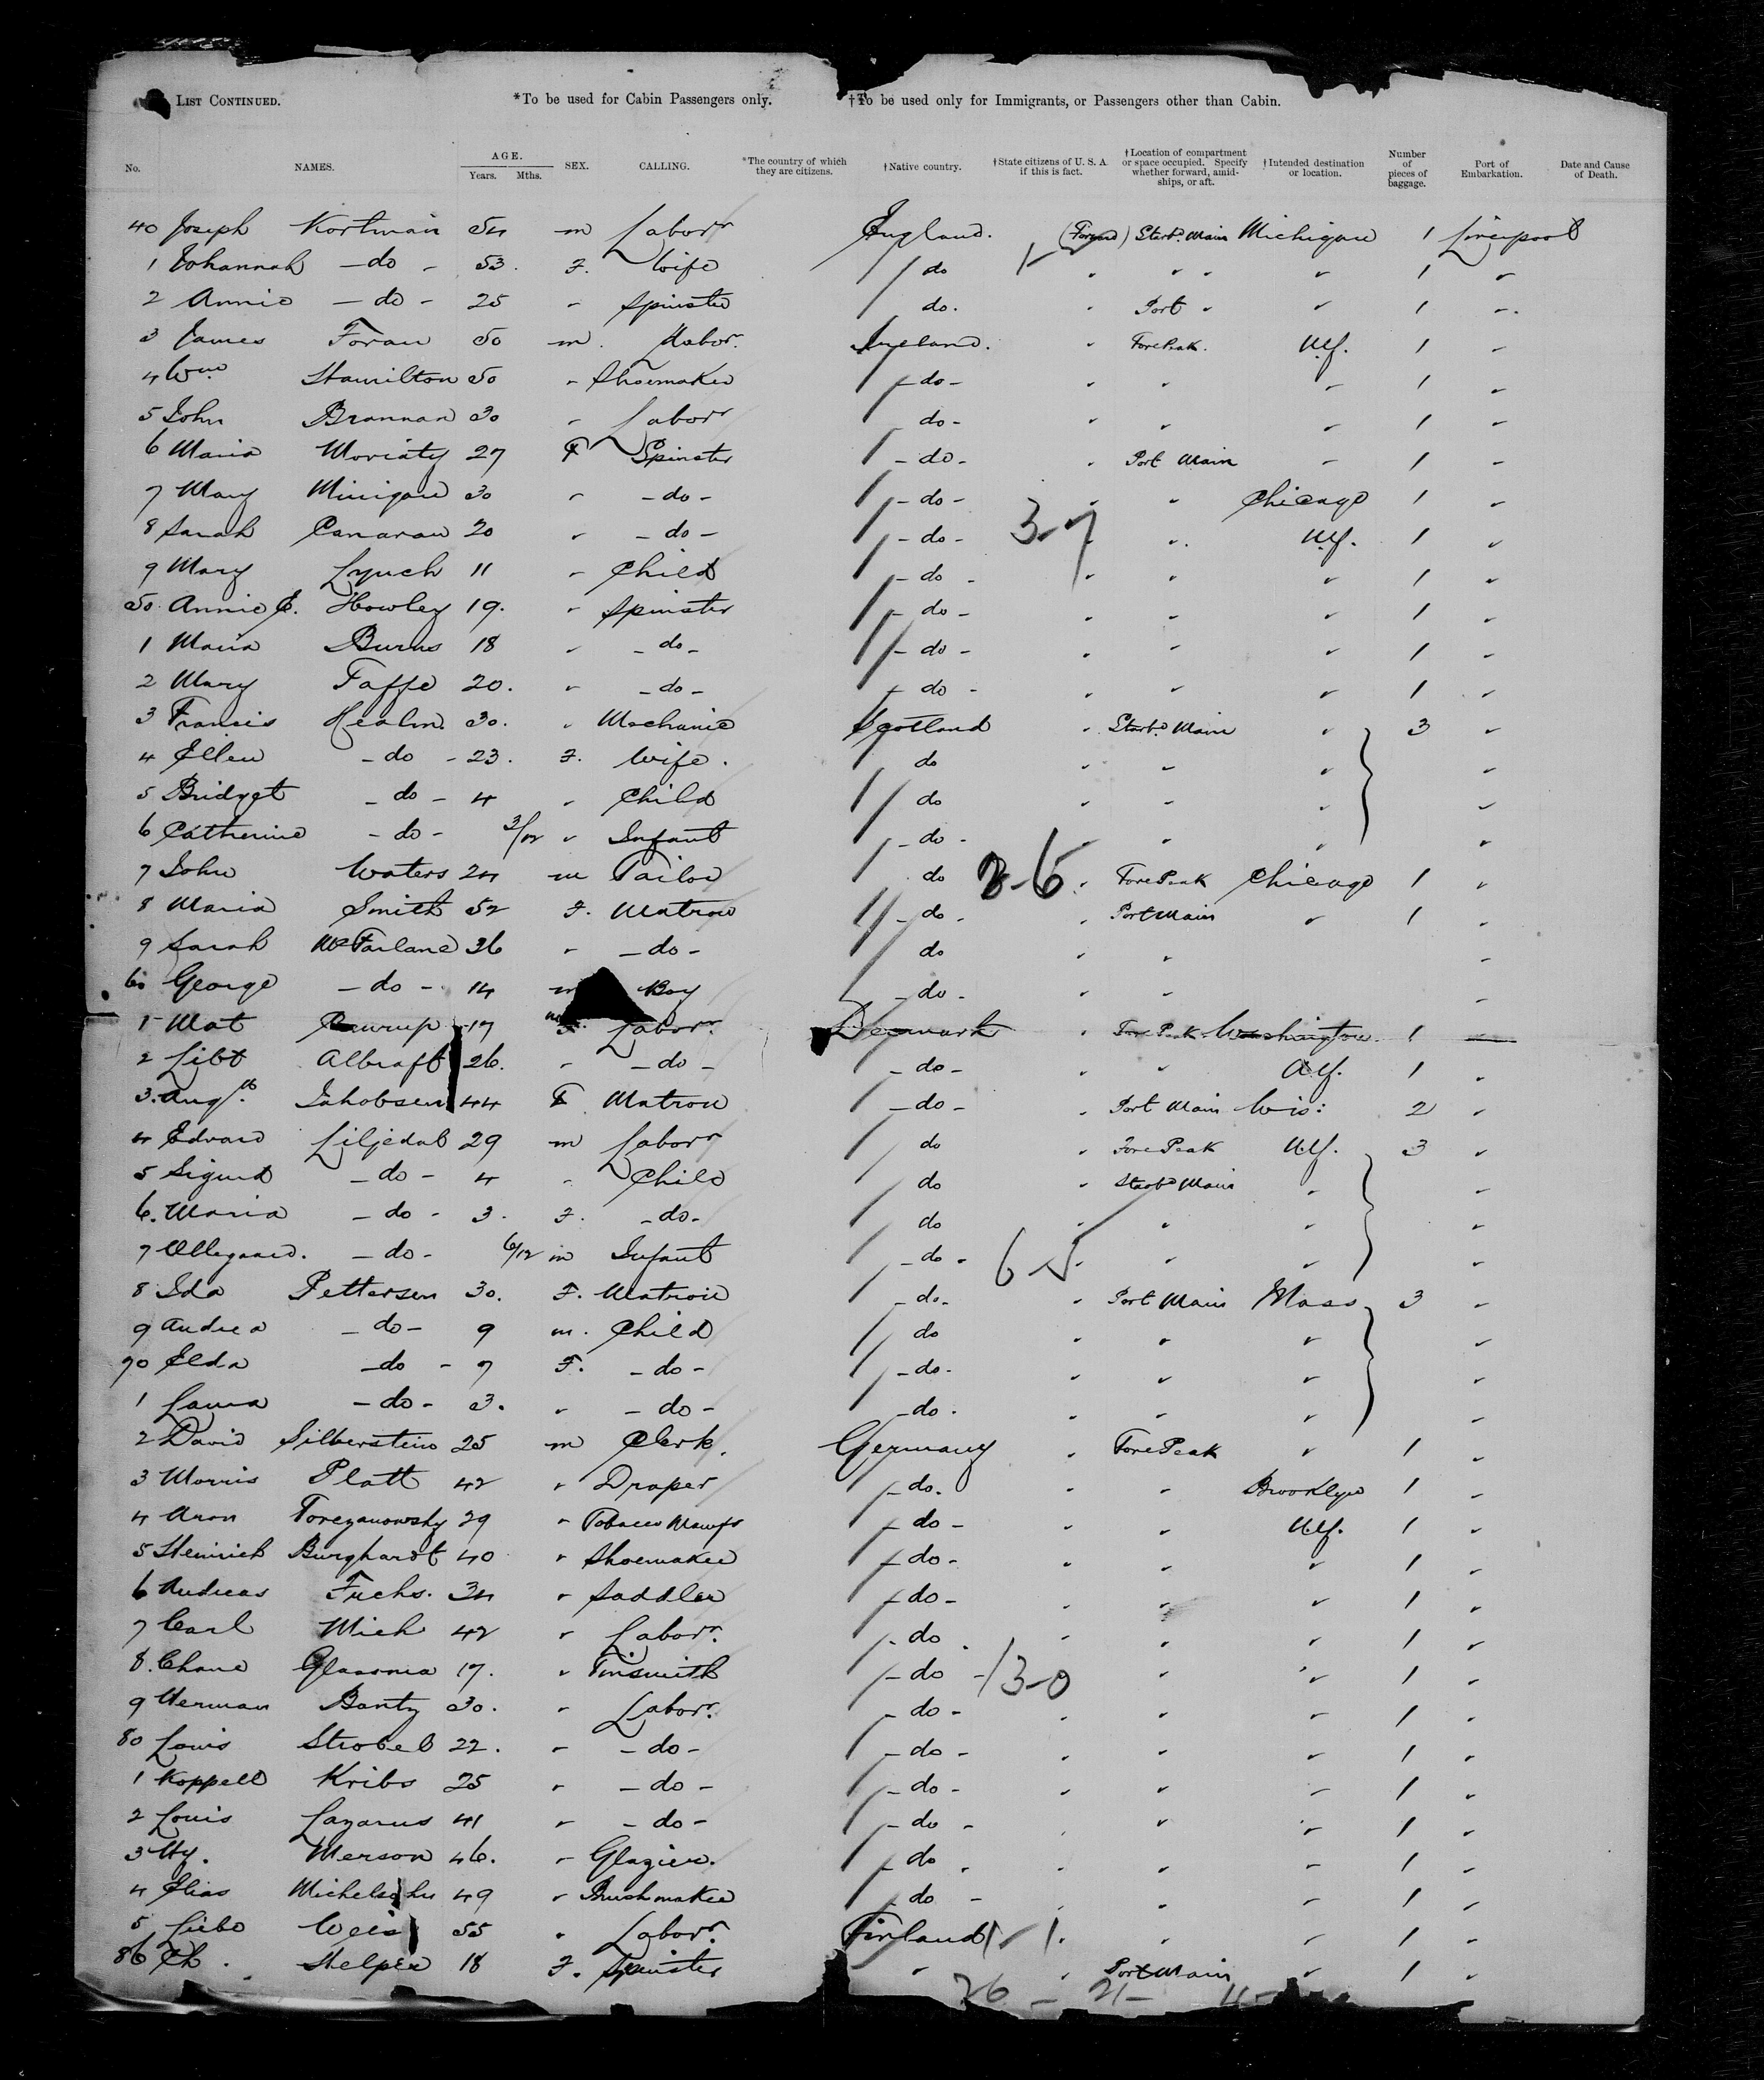 LIST CONTINUED. *To be used for Cabin Passengers only. †To be used only for Immigrants, or Passengers other than Cabin.
No. NAMES. AGE. Years. Mths. SEX. CALLING. *The country of which they are citizens. †Native country. †State citizens of U. S. A. if this is fact. †Location of compartment or space occupied. Specify whether forward, amidships, or aft. †Intended destination or location. Number of pieces of baggage. Port of Embarkation. Date and Cause of Death.
40 Joseph Kortman 54 m Labor England. (Forward) Starb. Main Michigan 1 Liverpool
1 Johannah - do - 53. F. Wife do " " " " 1 "
2 Annie - do - 25 " Spinster do. " Port " " 1 "
3 James Foran 50 m. Labor. Ireland. " Fore Peak. N.Y. 1 "
4 Wm Hamilton 50 " Shoemaker - do - " " " 1 "
5 John Brannan 30 " Labor do - " " " 1 "
6 Maria Moriaty 27 F Spinster - do - " Port Main " 1 "
7 Mary Minigan 30 " - do - - do - " " Chicago 1 "
8 Sarah Canavan 20 " - do - - do - 3-7 " " N.Y. 1 "
9 Mary Lynch 11 " Child - do - " " " 1 "
50 Annie E. Howley 19. " Spinster - do - " " " 1 "
1 Maria Burns 18 " - do - - do - " " " 1 "
2 Mary Taffe 20. " - do - - do - " " " 1 "
3 Francis 30. " Mechanic Scotland " Starb. Main " 3 "
4 Ellen - do - 23. F. Wife. do " " " "
5 Bridget - do - 4 " Child do " " " "
6 Catherine - do - 3/12 " Infant - do - " " " "
7 John Waters 24 m Tailor do " Fore Peak Chicago 1 "
8 Maria Smith 52 F. Matron - do - " Port Main " 1 "
9 Sarah McFarlane 36 " - do - do " " "
60 George - do - 14 m Boy - do - " " "
1 Mat 17 Labor. Denmark " Fore Peak Washington. 1
2 Albraft 26. " - do - - do - " " N.Y. 1 "
3. Augta Jakobsen 44 F Matron - do - " Port Main Wis: 2 "
4 Edvard Liljedal 29 m Labor do " Fore Peak N.Y. 3 "
5 Sigurd - do - 4 " Child do " Starb Main " "
6. Maria - do - 3. F. - do - do " " " "
7 - do - 6/12 m Infant - do - " " "
8 Ida Pettersen 30. F. Matron - do - " Port Main Mass 3 "
9 Andrea - do - 9 m. Child do " " " "
70 Elda - do - 7 F. - do - - do - " " " "
1 Laura - do - 3. " - do - - do - " " " "
2 David Silberstein 25 m Clerk. Germany " Fore Peak " 1 "
3 Morris Platt 42 " Draper - do - " " Brooklyn 1 "
4 Aron 29 " Tobacco Manufr - do - " " N.Y. 1 "
5 Heinrich Burghardt 40 " Shoemaker - do - " " " 1 "
6 Andreas Fuchs. 34 " Saddler - do - " " " 1 "
7 Carl Mich 42 " Labor. - do - " " " 1 "
8. Chane 17. " Tinsmith - do - 13-0 " " 1 "
9 Herman Bantz 30. " Labor. - do - " " " 1 "
80 Louis Strobel 22. " - do - - do - " " " 1 "
1 Koppell Kribs 25 " - do - - do - " " " 1 "
2 Louis Lazarus 41 " - do - - do - " " " 1 "
3 Hy. Merson 46. " Glazier. - do - " " " 1 "
4 Elias 49 " Brushmaker - do - " " " 1 "
5 Weis 55 " Labor. Finland " " " 1 "
86 Helper 18 F. Spinster " " Port Main " 1 "